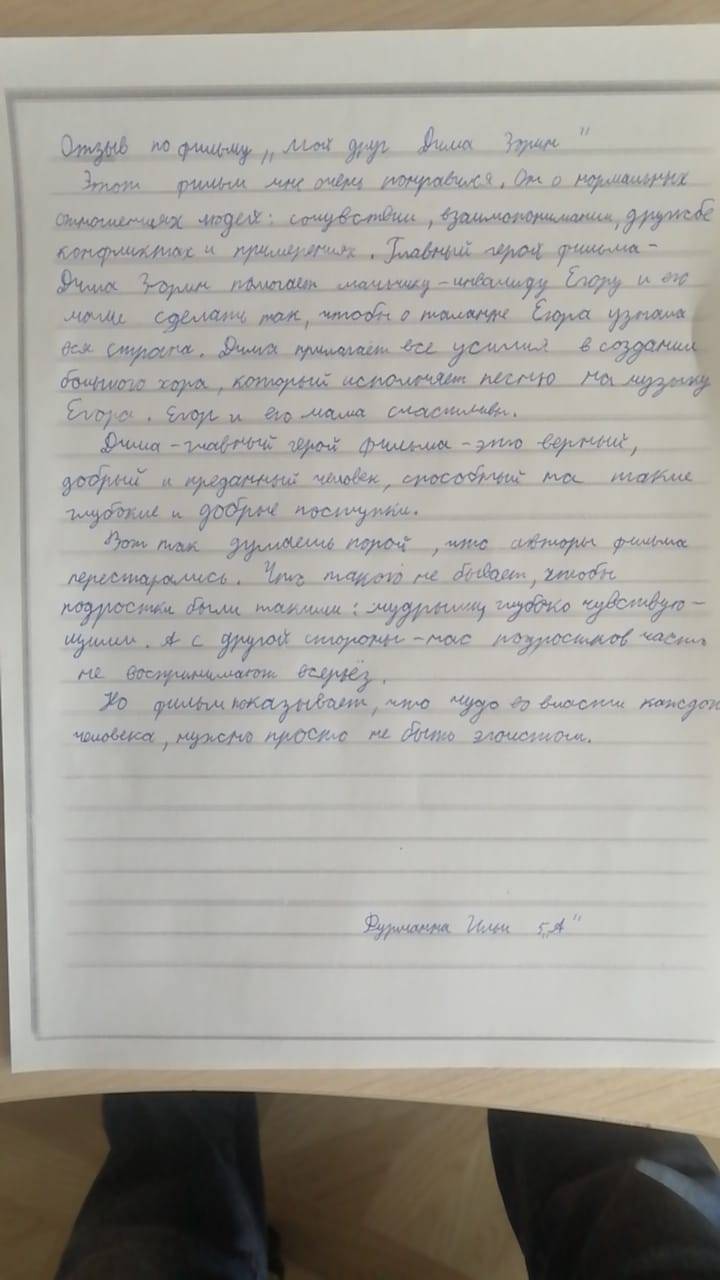 Отзыв по фильму „Мой друг Дима Зорин"
Этот фильм мне очень понравился. Он о нормальных
отношениях людей: сочувствии, взаимопонимании, дружбе
конфликтах и примерениях. Главный герой фильма –
Дима Зорин помогает мальчику-инвалиду Егору и его
маме сделать так, чтобы о таланте Егора узнала
вся страна. Дима прилагает все усилия в создании
большого хора, который исполняет песню на музыку
Егора. Егор и его мама счастливы.
Дима – главный герой фильма – это верный,
добрый и преданный человек, способный на такие
глубокие и добрые поступки.
Вот так думаешь порой, что авторы фильма
перестарались. Что такого не бывает, чтобы
подростки были такими: мудрыми, глубоко чувствую-
щими. А с другой стороны – нас подростков часто
не воспринимают всерьёз.
Но фильм показывает, что чудо во власти каждого
человека, нужно просто не быть эгоистом.
Фурманна Ильи 5„А"